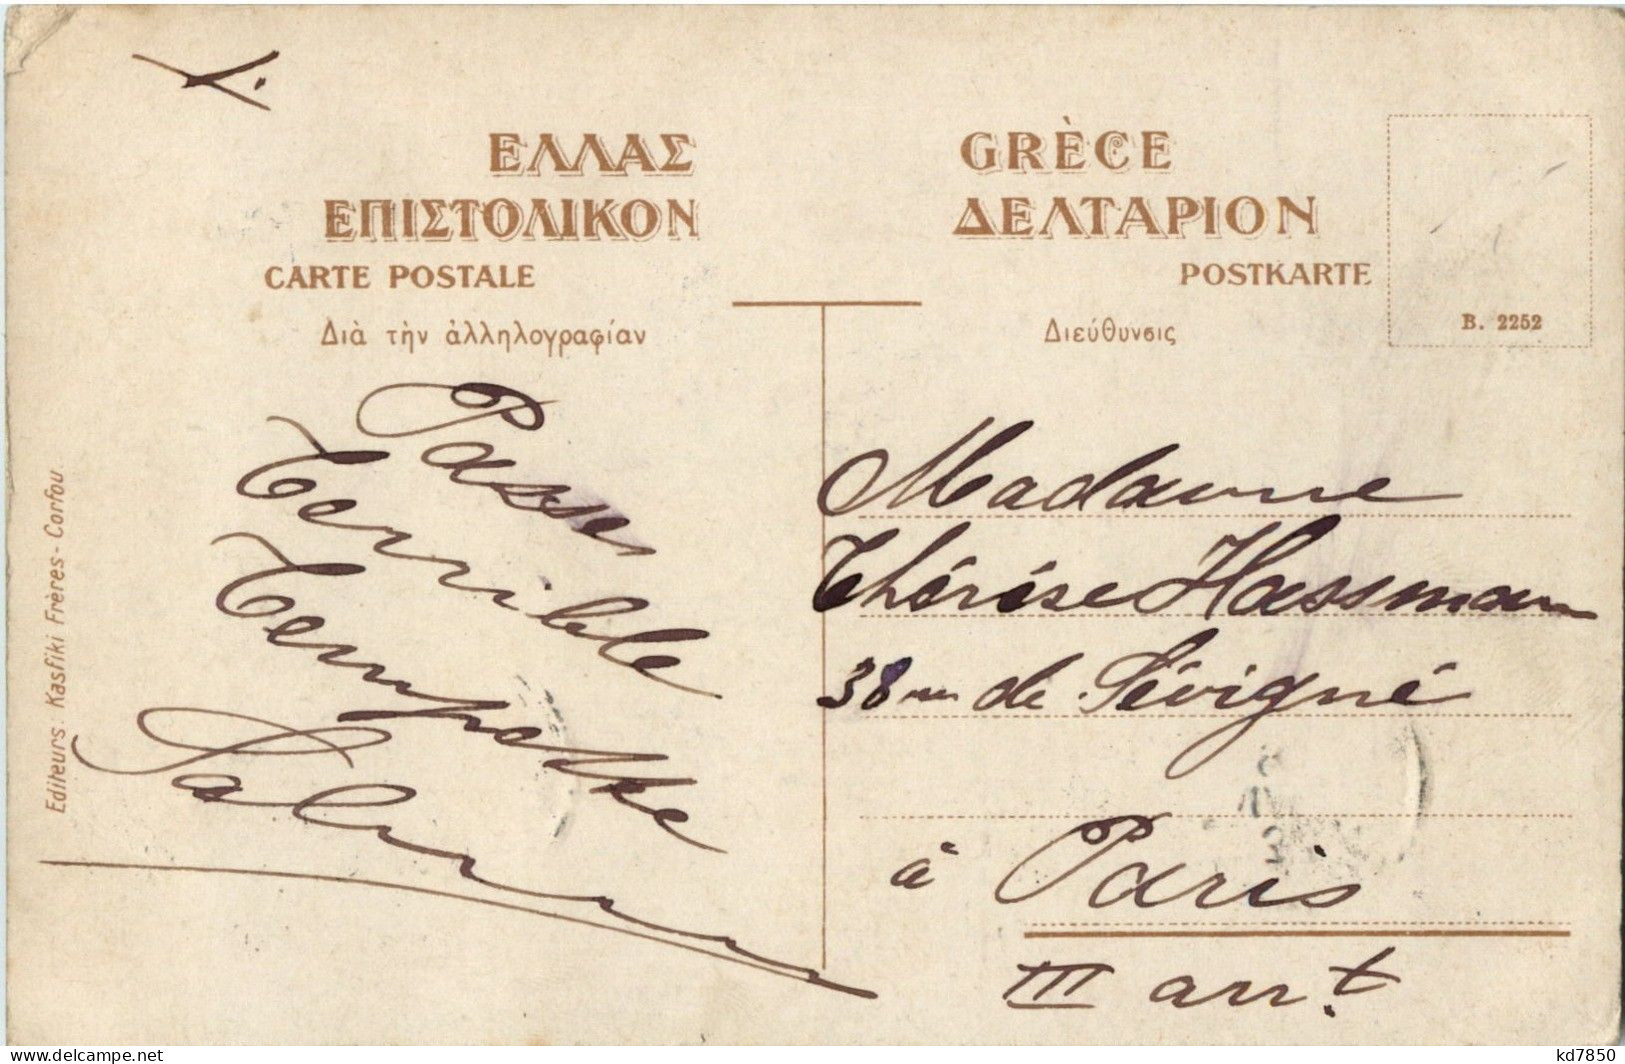 ΕΛΛΑΣ
GRÈCE
ΕΠΙΣΤΟΛΙΚΟΝ
ΔΕΛΤΑΡΙΟΝ
CARTE POSTALE
POSTKARTE
Διὰ τὴν ἀλληλογραφίαν
Διεύθυνσις
B. 2252
Editeurs: Kasfiki Frères - Corfou
Passer
Terrible
Tempette
Madame
Thérèse Hassmann
38 rue de Sévigné
à Paris
III arr.t
kd7850